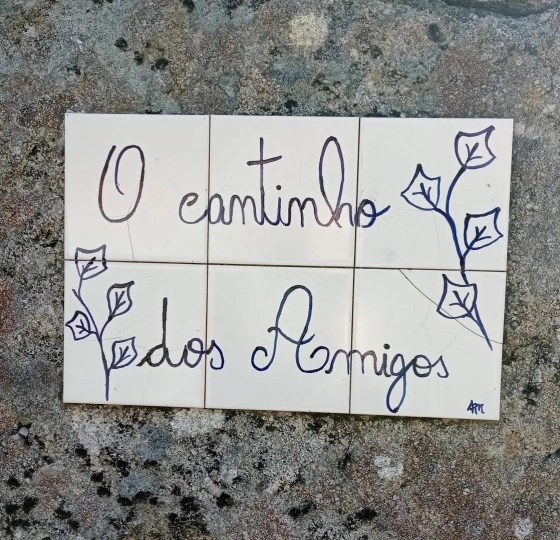 O cantinho
dos Amigos